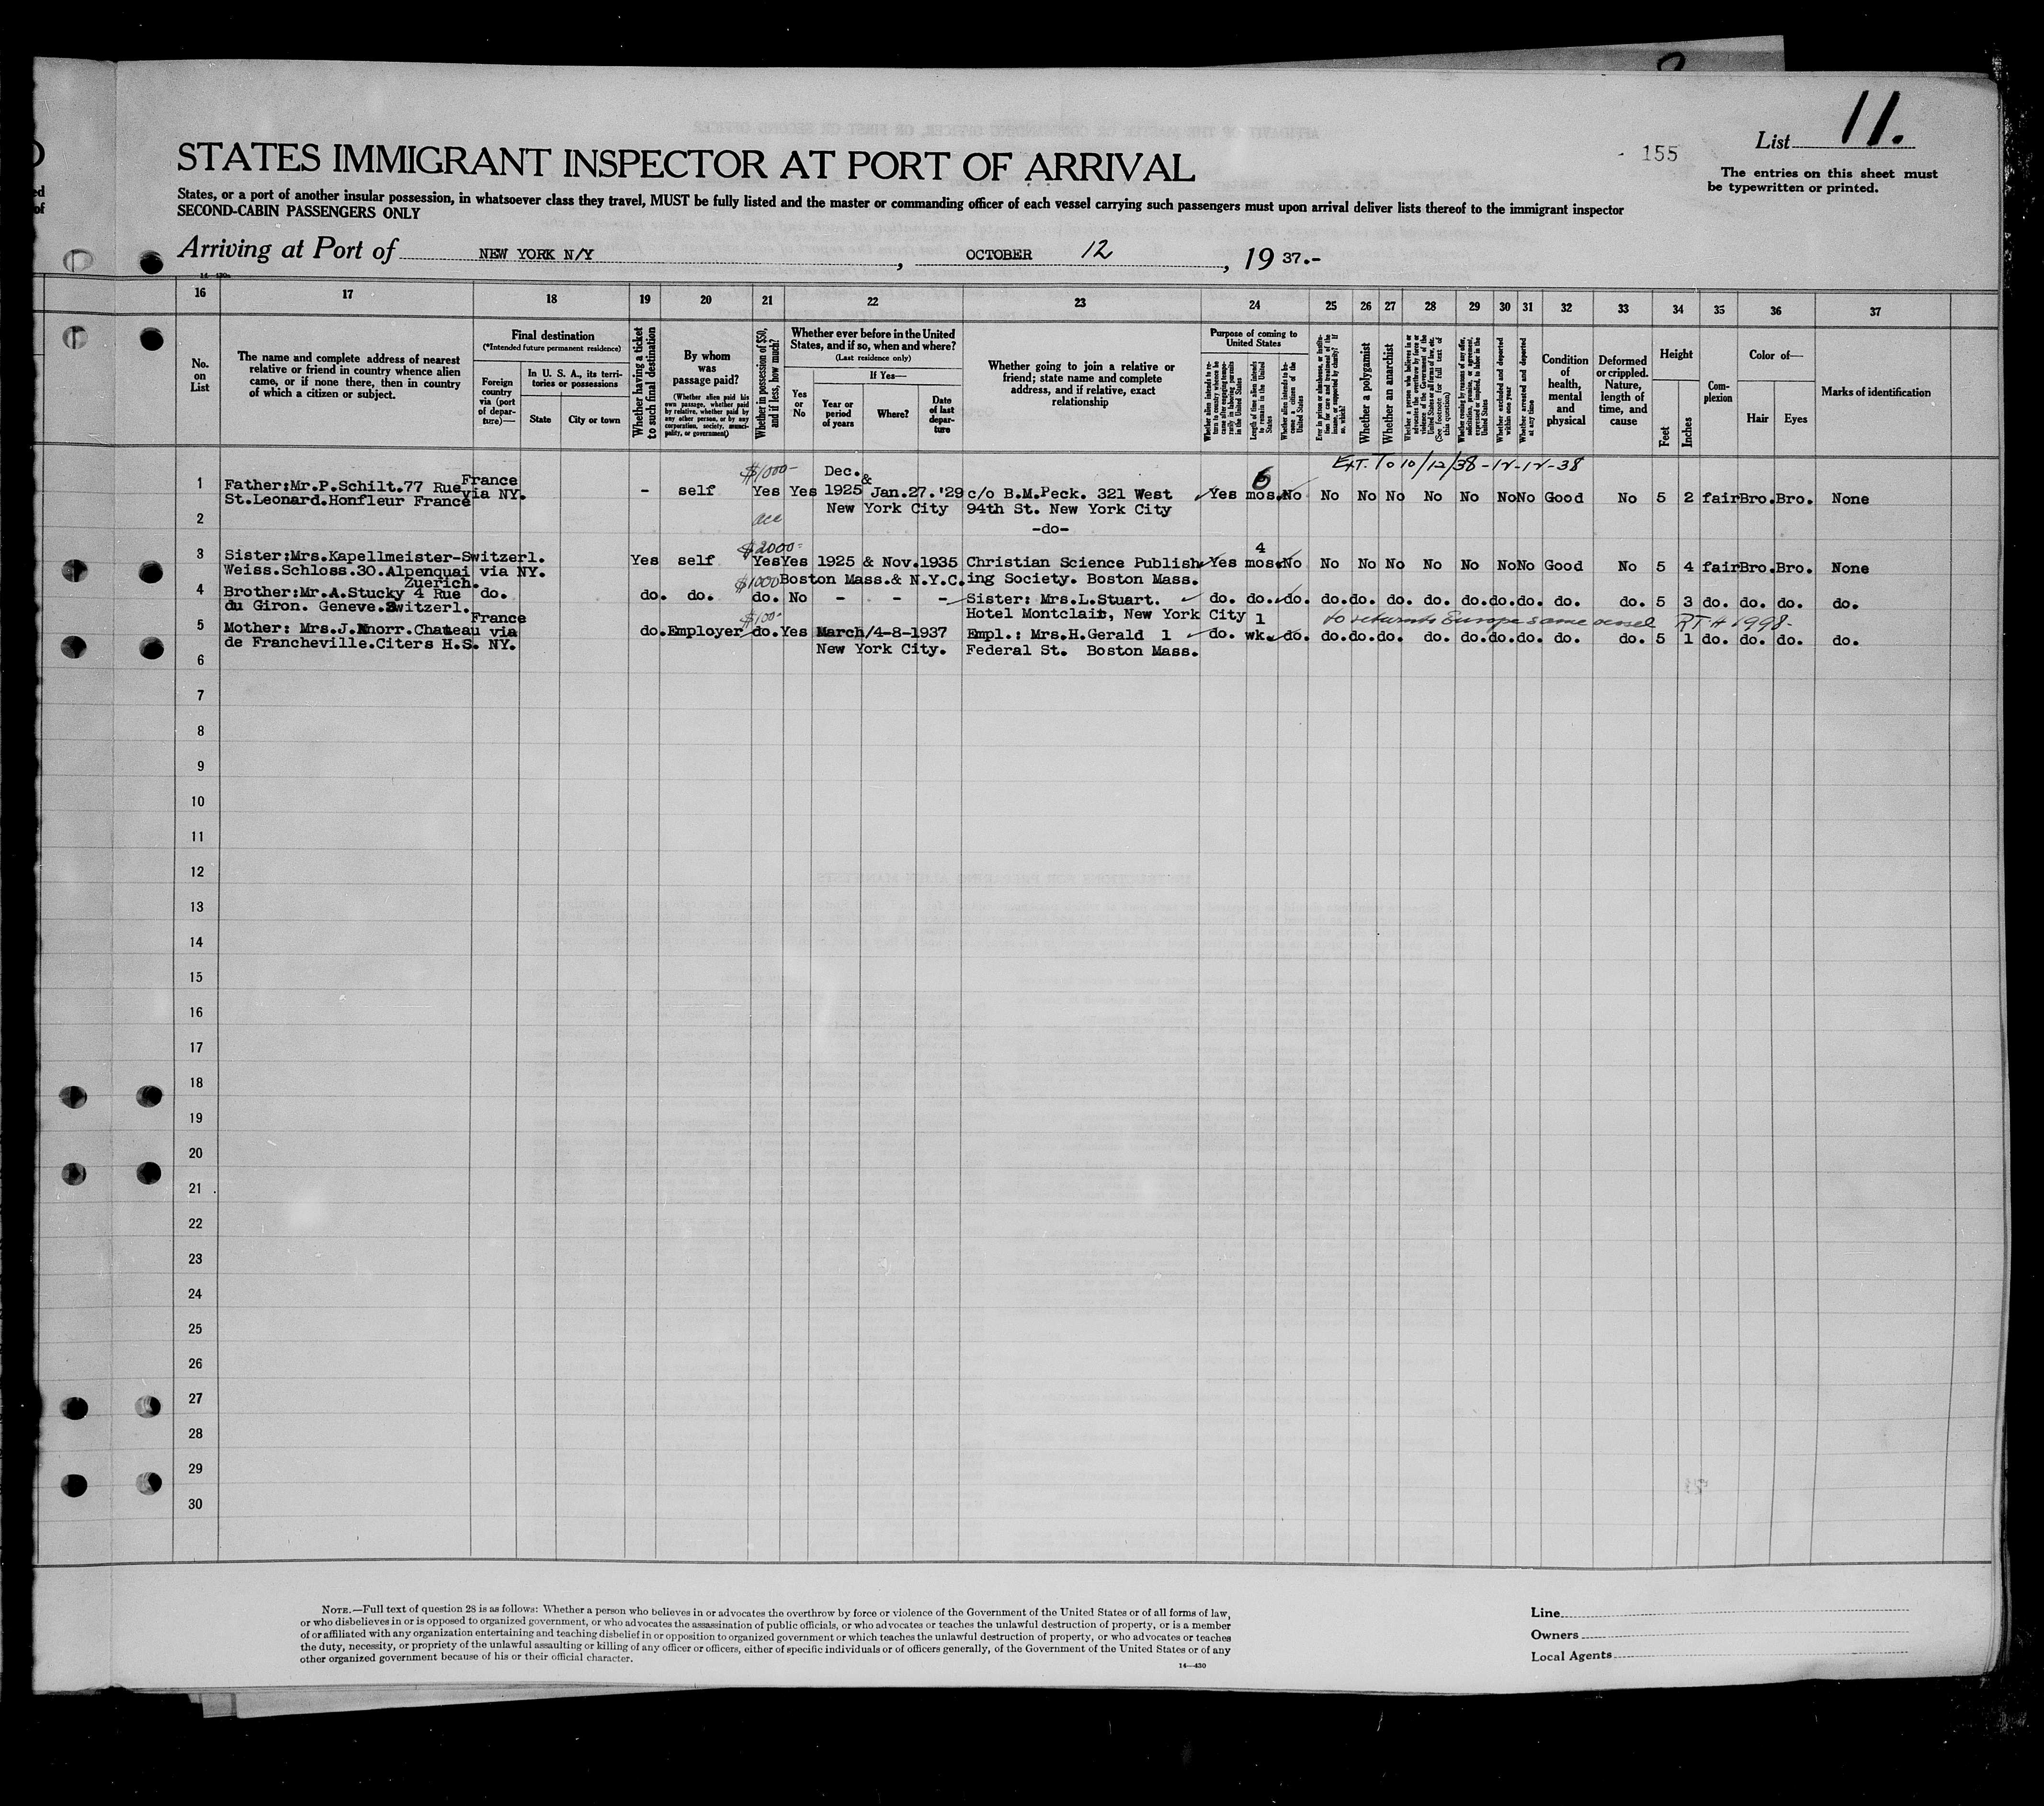 List 11.
155
The entries on this sheet must
be typewritten or printed.
STATES IMMIGRANT INSPECTOR AT PORT OF ARRIVAL
States, or a port of another insular possession, in whatsoever class they travel, MUST be fully listed and the master or commanding officer of each vessel carrying such passengers must upon arrival deliver lists thereof to the immigrant inspector
SECOND-CABIN PASSENGERS ONLY
Arriving at Port of NEW YORK N/Y , OCTOBER 12 , 19 37.-
16 17 18 19 20 21 22 23 24 25 26 27 28 29 30 31 32 33 34 35 36 37
No.
on
List
The name and complete address of nearest
relative or friend in country whence alien
came, or if none there, then in country
of which a citizen or subject.
Final destination
(*Intended future permanent residence)
Foreign
country
via (port
of depar-
ture)—
In U. S. A., its terri-
tories or possessions
State
City or town
Whether having a ticket
to such final destination
By whom
was
passage paid?
(Whether alien paid his
own passage, whether paid
by relative, whether paid by
any other person, or by any
corporation, society, munici-
pality, or government)
Whether in possession of $50,
and if less, how much?
Whether ever before in the United
States, and if so, when and where?
(Last residence only)
Yes
or
No
If Yes—
Year or
period
of years
Where?
Date
of last
depar-
ture
Whether going to join a relative or
friend; state name and complete
address, and if relative, exact
relationship
Purpose of coming to
United States
Whether alien intends to re-
turn to country whence he
came after engaging tempo-
rarily in laboring pursuits
in the United States
Length of time alien intends
to remain in the United
States
Whether alien intends to be-
come a citizen of the
United States
Ever in prison or almshouse, or institu-
tion for care and treatment of the
insane, or supported by charity? If
so, which?
Whether a polygamist
Whether an anarchist
Whether a person who believes in or
advocates the overthrow by force or
violence of the Government of the
United States or all forms of law, etc.
(See footnote for full text of
this question)
Whether coming by reason of any offer,
solicitation, promise, or agreement,
expressed or implied, to labor in the
United States
Whether excluded and deported
within one year
Whether arrested and deported
at any time
Condition
of
health,
mental
and
physical
Deformed
or crippled.
Nature,
length of
time, and
cause
Height
Feet
Inches
Com-
plexion
Color of—
Hair
Eyes
Marks of identification
$1000- Dec. & 6 EXT. To 10/12/38 - 12-12-38
1 Father:Mr.P.Schilt.77 Rue France - self Yes Yes 1925 Jan.27.'29 c/o B.M.Peck. 321 West Yes mos. No No No No No No No No Good No 5 2 fair Bro. Bro. None
St.Leonard.Honfleur France via NY. New York City 94th St. New York City
2 -do-
$2000- 4
3 Sister:Mrs.Kapellmeister-Switzerl. Yes self Yes Yes 1925 & Nov.1935 Christian Science Publish- Yes mos. No No No No No No No No Good No 5 4 fair Bro. Bro. None
Weiss.Schloss.30.Alpenquai via NY. Boston Mass.& N.Y.C. ing Society. Boston Mass.
Zuerich. $1000
4 Brother:Mr.A.Stucky 4 Rue do. do. do. do. No - - - Sister: Mrs.L.Stuart. do. do. do. do. do. do. do. do. do. do. do. do. 5 3 do. do. do. do.
du Giron. Geneve.Switzerl. Hotel Montclair, New York City
France $100- 1 to return to Europe same vessel RTH 1998-
5 Mother: Mrs.J.Knorr.Chateau via do. Employer do. Yes March/4-8-1937 Empl.: Mrs.H.Gerald 1 do. wk. do. do. do. do. do. do. do. do. do. do. 5 1 do. do. do. do.
de Francheville.Citers H.S. NY. New York City. Federal St. Boston Mass.
6
7
8
9
10
11
12
13
14
15
16
17
18
19
20
21
22
23
24
25
26
27
28
29
30
NOTE.—Full text of question 28 is as follows: Whether a person who believes in or advocates the overthrow by force or violence of the Government of the United States or of all forms of law,
or who disbelieves in or is opposed to organized government, or who advocates the assassination of public officials, or who advocates or teaches the unlawful destruction of property, or is a member
of or affiliated with any organization entertaining and teaching disbelief in or opposition to organized government or which teaches the unlawful destruction of property, or who advocates or teaches
the duty, necessity, or propriety of the unlawful assaulting or killing of any officer or officers, either of specific individuals or of officers generally, of the Government of the United States or of any
other organized government because of his or their official character.
14—430
Line
Owners
Local Agents